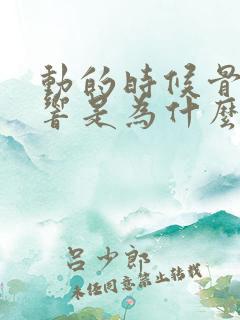 動的時候骨
響是為什麼
呂少郎
未经同意禁止转载